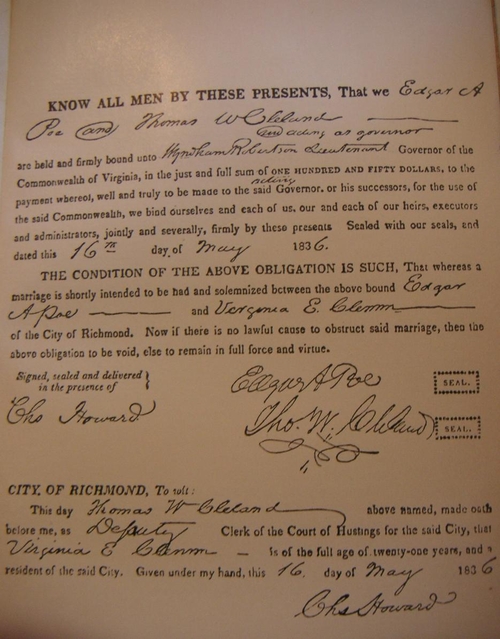 KNOW ALL MEN BY THESE PRESENTS, That we Edgar A
Poe and Thomas W Cleland
and acting as governor
are held and firmly bound unto Wyndham Robertson Lieutenant Governor of the
Commonwealth of Virginia, in the just and full sum of ONE HUNDRED AND FIFTY DOLLARS, to the
acting
payment whereof, well and truly to be made to the said Governor, or his successors, for the use of
the said Commonwealth, we bind ourselves and each of us, our and each of our heirs, executors
and administrators, jointly and severally, firmly by these presents Sealed with our seals, and
dated this 16th day of May 1836.
THE CONDITION OF THE ABOVE OBLIGATION IS SUCH, That whereas a
marriage is shortly intended to be had and solemnized between the above bound Edgar
A Poe and Virginia E. Clemm
of the City of Richmond. Now if there is no lawful cause to obstruct said marriage, then the
above obligation to be void, else to remain in full force and virtue.
Signed, sealed and delivered }
in the presence of
Edgar A Poe SEAL.
Chs Howard
Tho. W. Cleland SEAL.
CITY OF RICHMOND, To wit:
This day Thomas W Cleland above named, made oath
before me, as Deputy Clerk of the Court of Hustings for the said City, that
Virginia E Clemm is of the full age of twenty-one years, and a
resident of the said City. Given under my hand, this 16 day of May 1836
Chs Howard